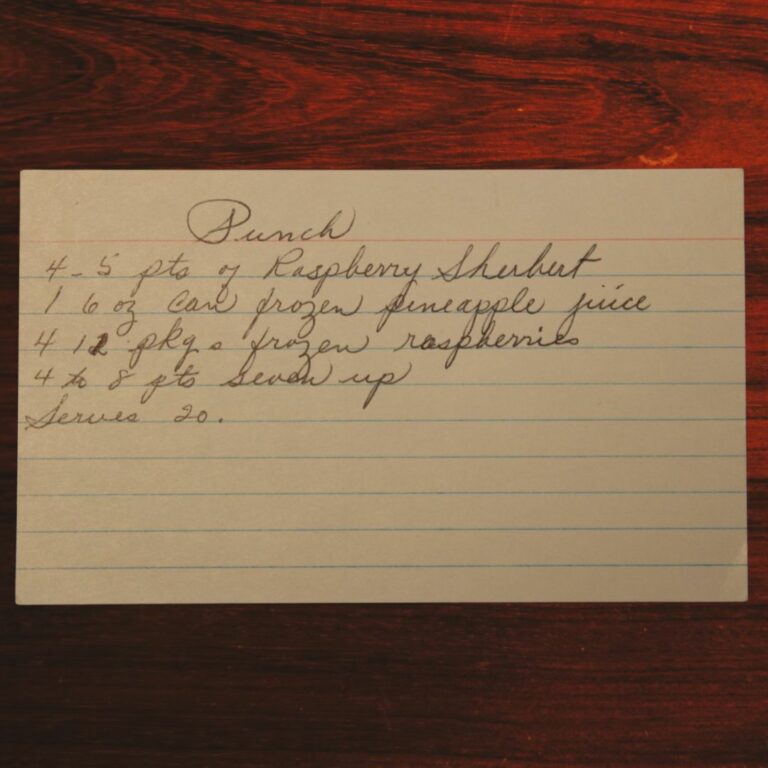 Punch
4-5 pts of Raspberry Sherbert
1 6 oz can frozen pineapple juice
4 12 pkgs frozen raspberries
4 to 8 pts seven up
Serves 20.